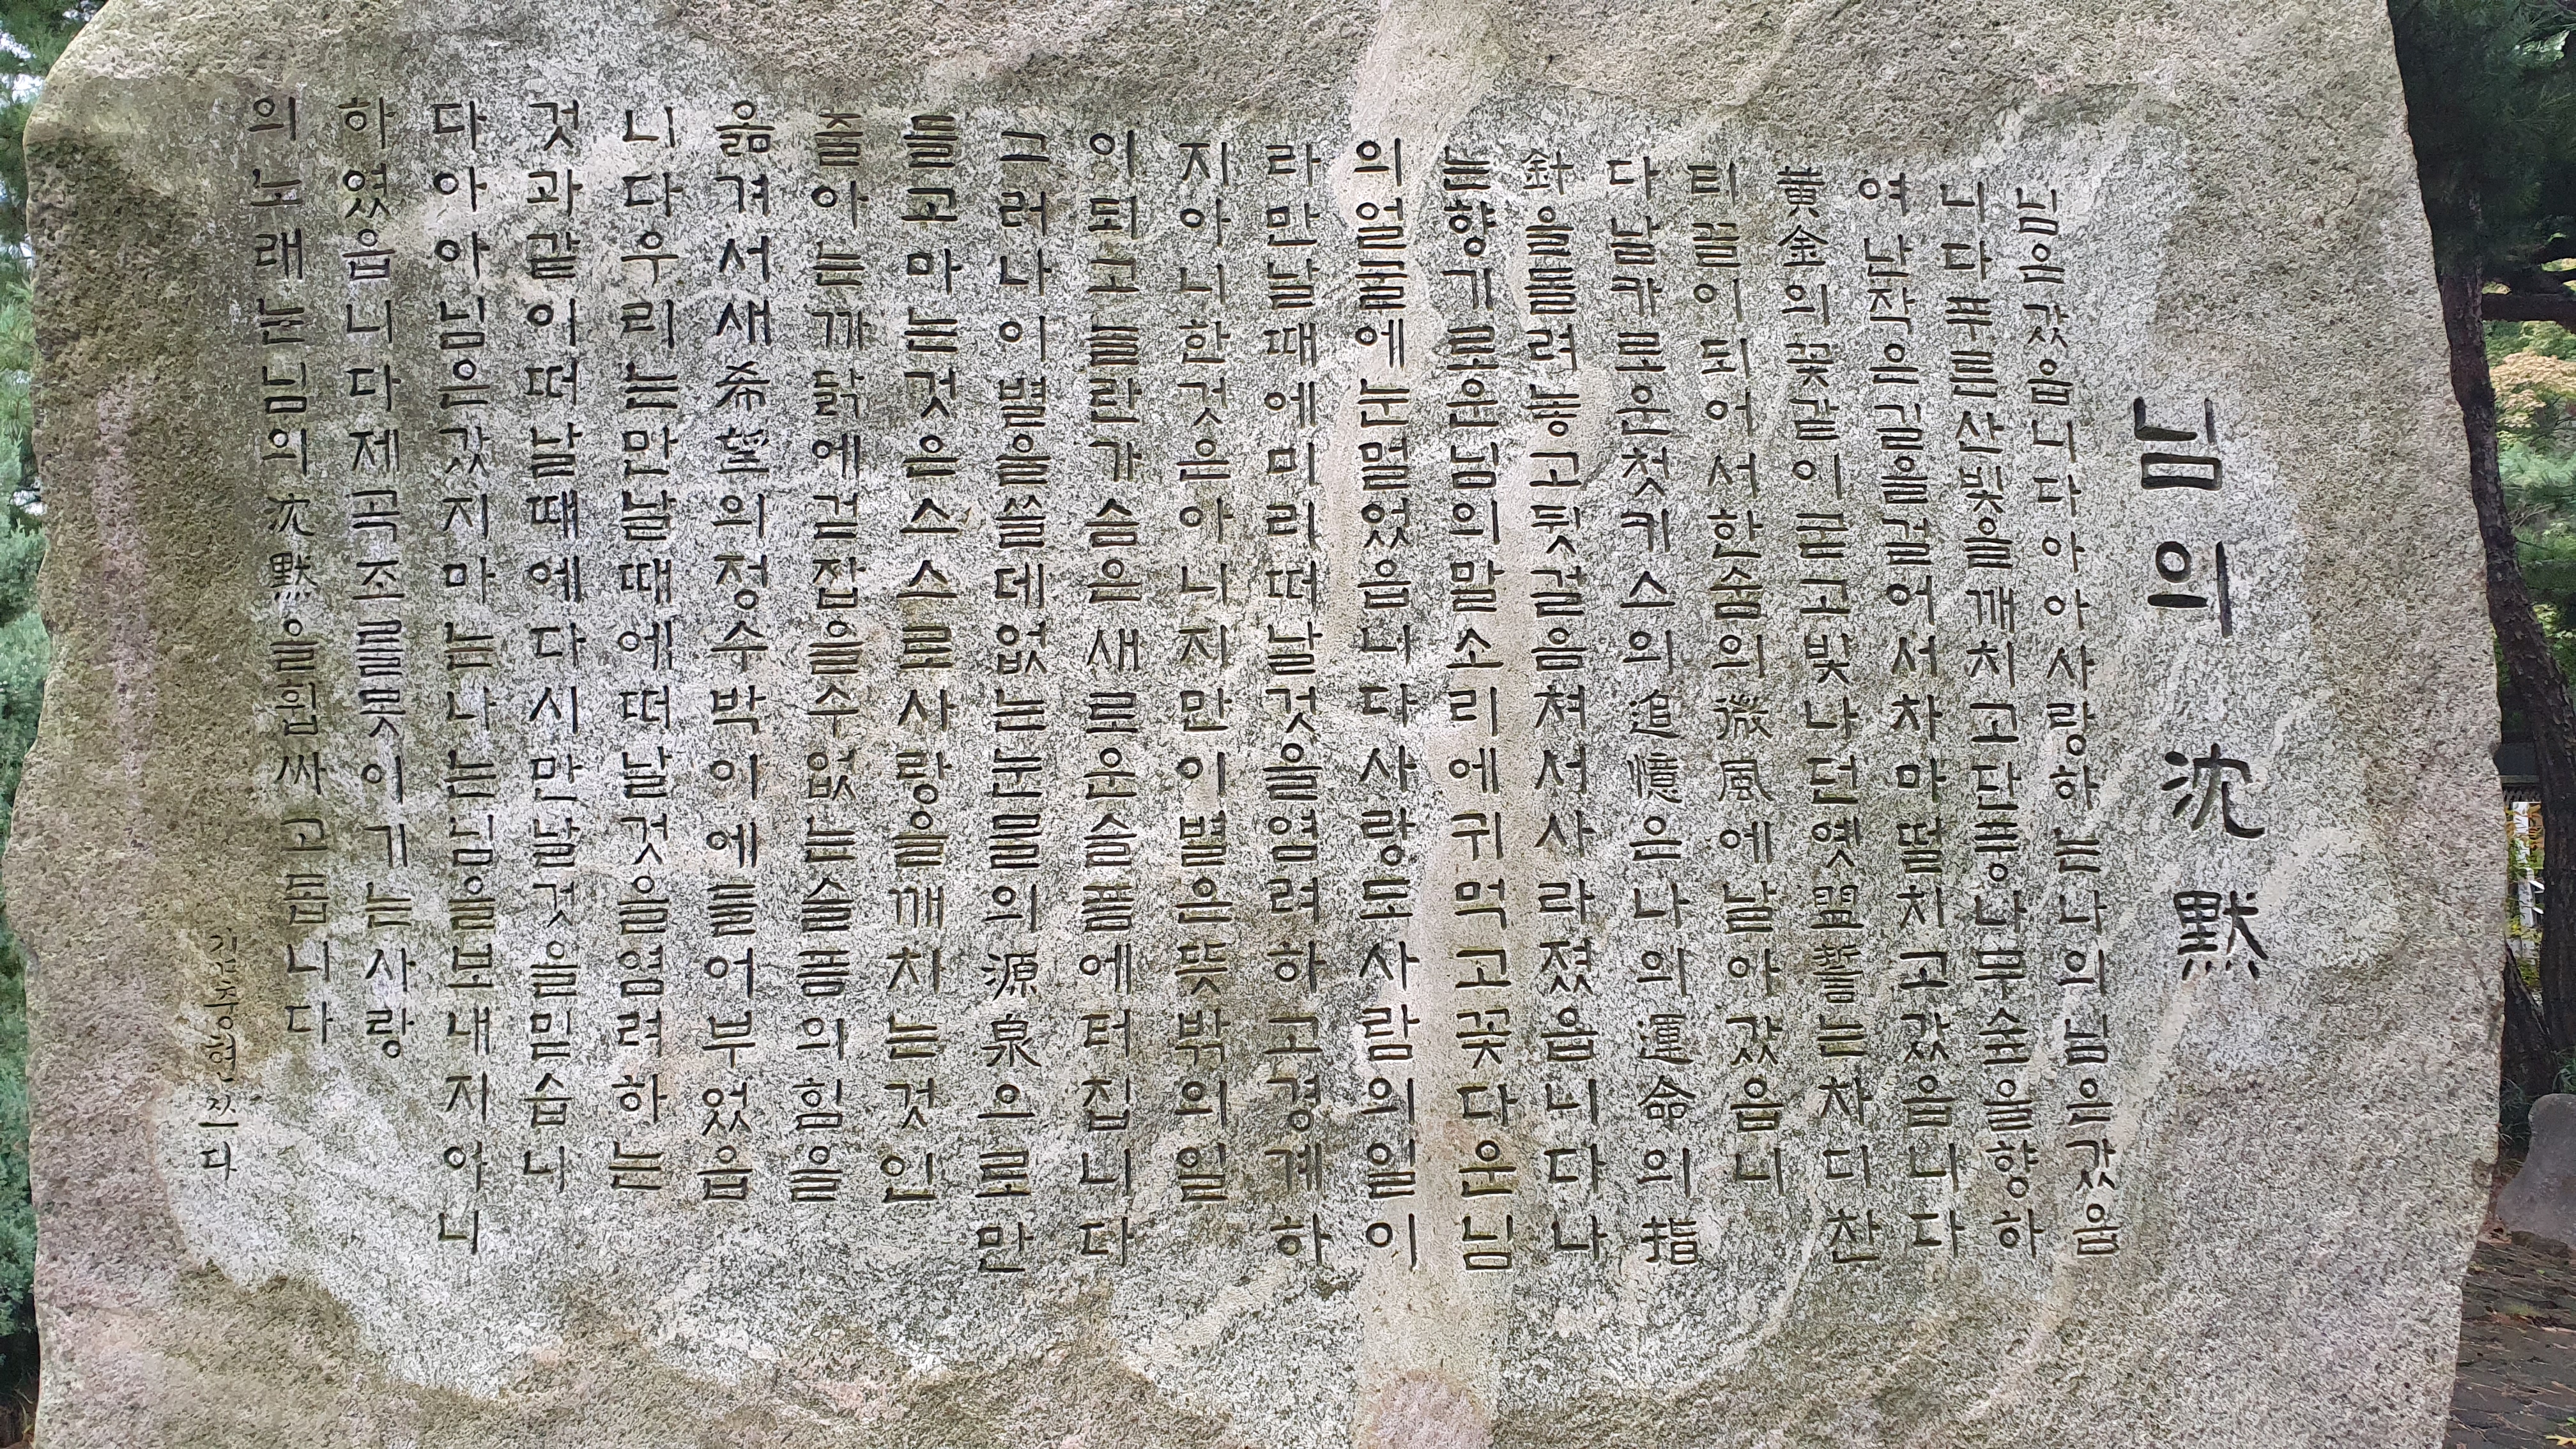 님의 沈默
님은갔읍니다아아사랑하는나의님은갔읍
니다푸른산빛을깨치고단풍나무숲을향하
여난작은길을걸어서차마떨치고갔읍니다
黃金의꽃같이굳고빛나던옛盟誓는차디찬
티끌이되어서한숨의微風에날아갔읍니
다날카로운첫키스의追憶은나의運命의指
針을돌려놓고뒷걸음쳐서사라졌읍니다나
는향기로운님의말소리에귀먹고꽃다운님
의얼굴에눈멀었읍니다사랑도사람의일이
라만날때에미리떠날것을염려하고경계하
지아니한것은아니지만이별은뜻밖의일
이되고놀란가슴은새로운슬픔에터집니다
그러나이별을쓸데없는눈물의源泉으로만
들고마는것은스스로사랑을깨치는것인
줄아는까닭에걷잡을수없는슬픔의힘을
옮겨서새希望의정수박이에들어부었읍
니다우리는만날때에떠날것을염려하는
것과같이떠날때에다시만날것을믿습니
다아아님은갔지마는나는님을보내지아니
하였읍니다제곡조를못이기는사랑
의노래는님의沈默을휩싸고돕니다
김충현 쓰다